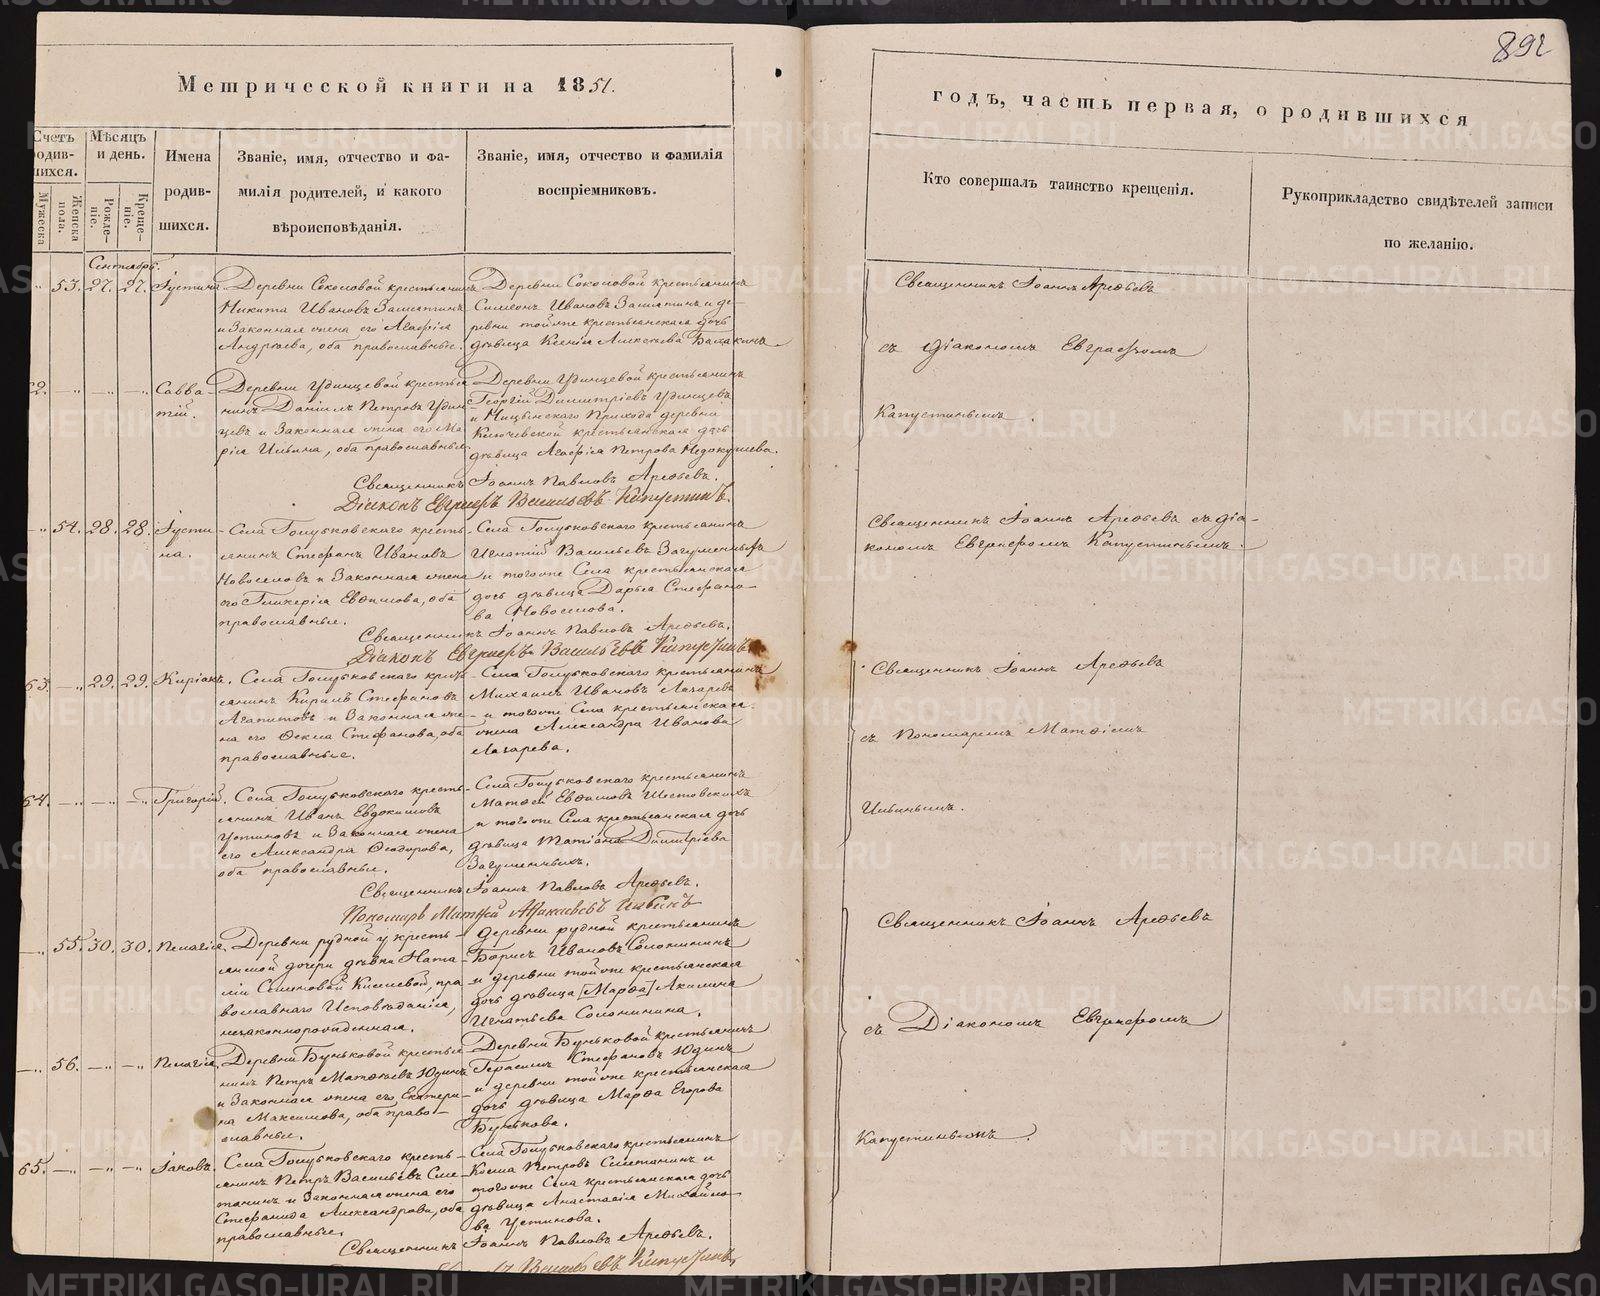 892
Метрической книги на 1851.
годъ, часть первая, о родившихся
Счетъ родив-шихся.
Мѣсяцъ и день.
Имена родив-шихся.
Званіе, имя, отчество и фа-
милія родителей, и какого
вѣроисповѣданія.
Званіе, имя, отчество и фамилія
воспріемниковъ.
Кто совершалъ таинство крещенія.
Рукоприкладство свидѣтелей записи
по желанію.
Мужеска
Женска пола.
Рожде-ніе.
Креще-ніе.
Сентябрь.
53. 27. 27. Іустина
Деревни Соколовой крестьянинъ
Никита Ивановъ Замятинъ
и законная жена его Агафія
Андреева, оба православные.
Деревни Соколовой крестьянинъ
Симеонъ Ивановъ Замятинъ и де-
ревни тойже крестьянская дочь
дѣвица Ксенія Алексеева
Священникъ Іоаннъ Арефьевъ
съ Діакономъ Евграфомъ
Капустинымъ
Савва-
тій.
Деревни Удинцевой крестья-
нинъ Даніилъ Петровъ Удин-
цевъ и законная жена его Ма-
рія Ильина, оба православные
Деревни Удинцевой крестьянинъ
Георгій Димитріевъ Удинцевъ
и Ницынскаго прихода деревни
Ключевской крестьянская дочь
дѣвица Агафія Петрова Недокушева.
Священникъ Іоаннъ Павловъ Арефьевъ.
Діаконъ Евграфъ Васильевъ Капустинъ
54. 28. 28. Іусти-
на.
Села Голубковскаго кресть-
янинъ Стефанъ Ивановъ
Новоселовъ и законная жена
его Гликерія Евфимова, оба
православные.
Села Голубковскаго крестьянинъ
Игнатій Васильевъ Загуменныхъ
и тогоже Села крестьянская
дочь дѣвица Дарья Стефано-
ва Новоселова.
Священникъ Іоаннъ Арефьевъ съ Діа-
кономъ Евграфомъ Капустинымъ.
Священникъ Іоаннъ Павловъ Арефьевъ.
Діаконъ Евграфъ Васильевъ Капустинъ
63. 29. 29. Киріакъ.
Села Голубковскаго кресть-
янинъ Кирилъ Стефановъ
Агапитовъ и законная же-
на его Ѳекла Стефанова, оба
православные.
Села Голубковскаго крестьянинъ
Михаилъ Ивановъ Лазаревъ
и тогоже Села крестьянская
жена Александра Иванова
Лазарева.
Священникъ Іоаннъ Арефьевъ
съ Пономаремъ Матѳіемъ
Ильинымъ.
64. Григорій.
Села Голубковскаго кресть-
янинъ Иванъ Евдокимовъ
Устиновъ и законная жена
его Александра Ѳеодорова,
оба православные.
Села Голубковскаго крестьянинъ
Матѳей Евфимовъ Шестовскихъ
и тогоже Села крестьянская дочь
дѣвица Татіана Димитріева
Загуменныхъ.
Священникъ Іоаннъ Павловъ Арефьевъ.
Пономарь Матѳей
55. 30. 30. Пелагія.
Деревни рудной у кресть-
янской дочери дѣвки Ната-
ліи Семеновой Киселевой, пра-
вославнаго Исповѣданія,
незаконнорожденная.
Деревни рудной крестьянинъ
Борисъ Ивановъ Солонининъ
и деревни тойже крестьянская
дочь дѣвица [Марѳа] Акилина
Игнатьева Солонинина.
Священникъ Іоаннъ Арефьевъ
съ Діакономъ Евграфомъ
Капустинымъ.
56. Пелагія.
Деревни Буньковой крестья-
нинъ Петръ Матѳѣевъ Юдинъ
и законная жена его Екатери-
на Максимова, оба право-
славные.
Деревни Буньковой крестьянинъ
Герасимъ Стефановъ Юдинъ
и деревни тойже крестьянская
дочь дѣвица Марѳа Егорова
Бунькова.
65. Іаковъ.
Села Голубковскаго кресть-
янинъ Петръ Васильевъ Сме-
танинъ и законная жена его
Стефанида Александрова, оба
православные.
Села Голубковскаго крестьянинъ
Косма Петровъ Сметанинъ и
тогоже Села крестьянская дочь
дѣвица Анастасія Михайло-
ва Устинова.
Священникъ Іоаннъ Павловъ Арефьевъ.
Васильевъ Капустинъ
METRIKI.GASO-URAL.RU